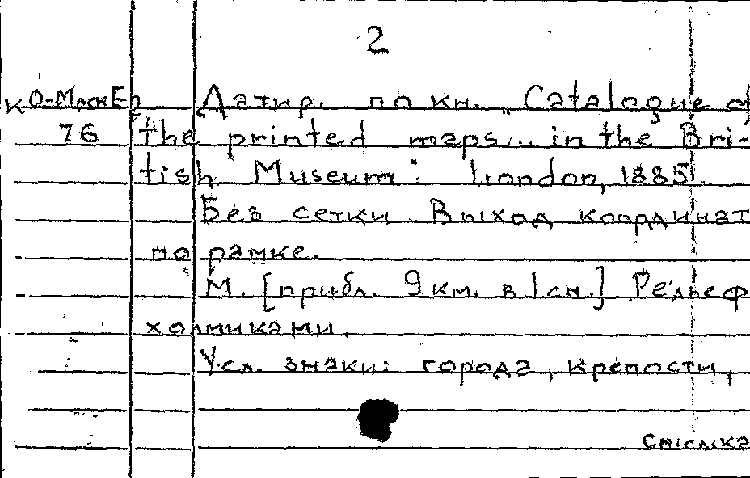 2
К О-МоскЕв Датир. по кн. „Catalogue of
76 the printed maps... in the Bri-
tish Museum". London, 1885
Без сетки Выход координат
по рамке.
М. [прибл. 9 км. в 1 см.] Рельеф
холмиками.
Усл. знаки: города, крепости,